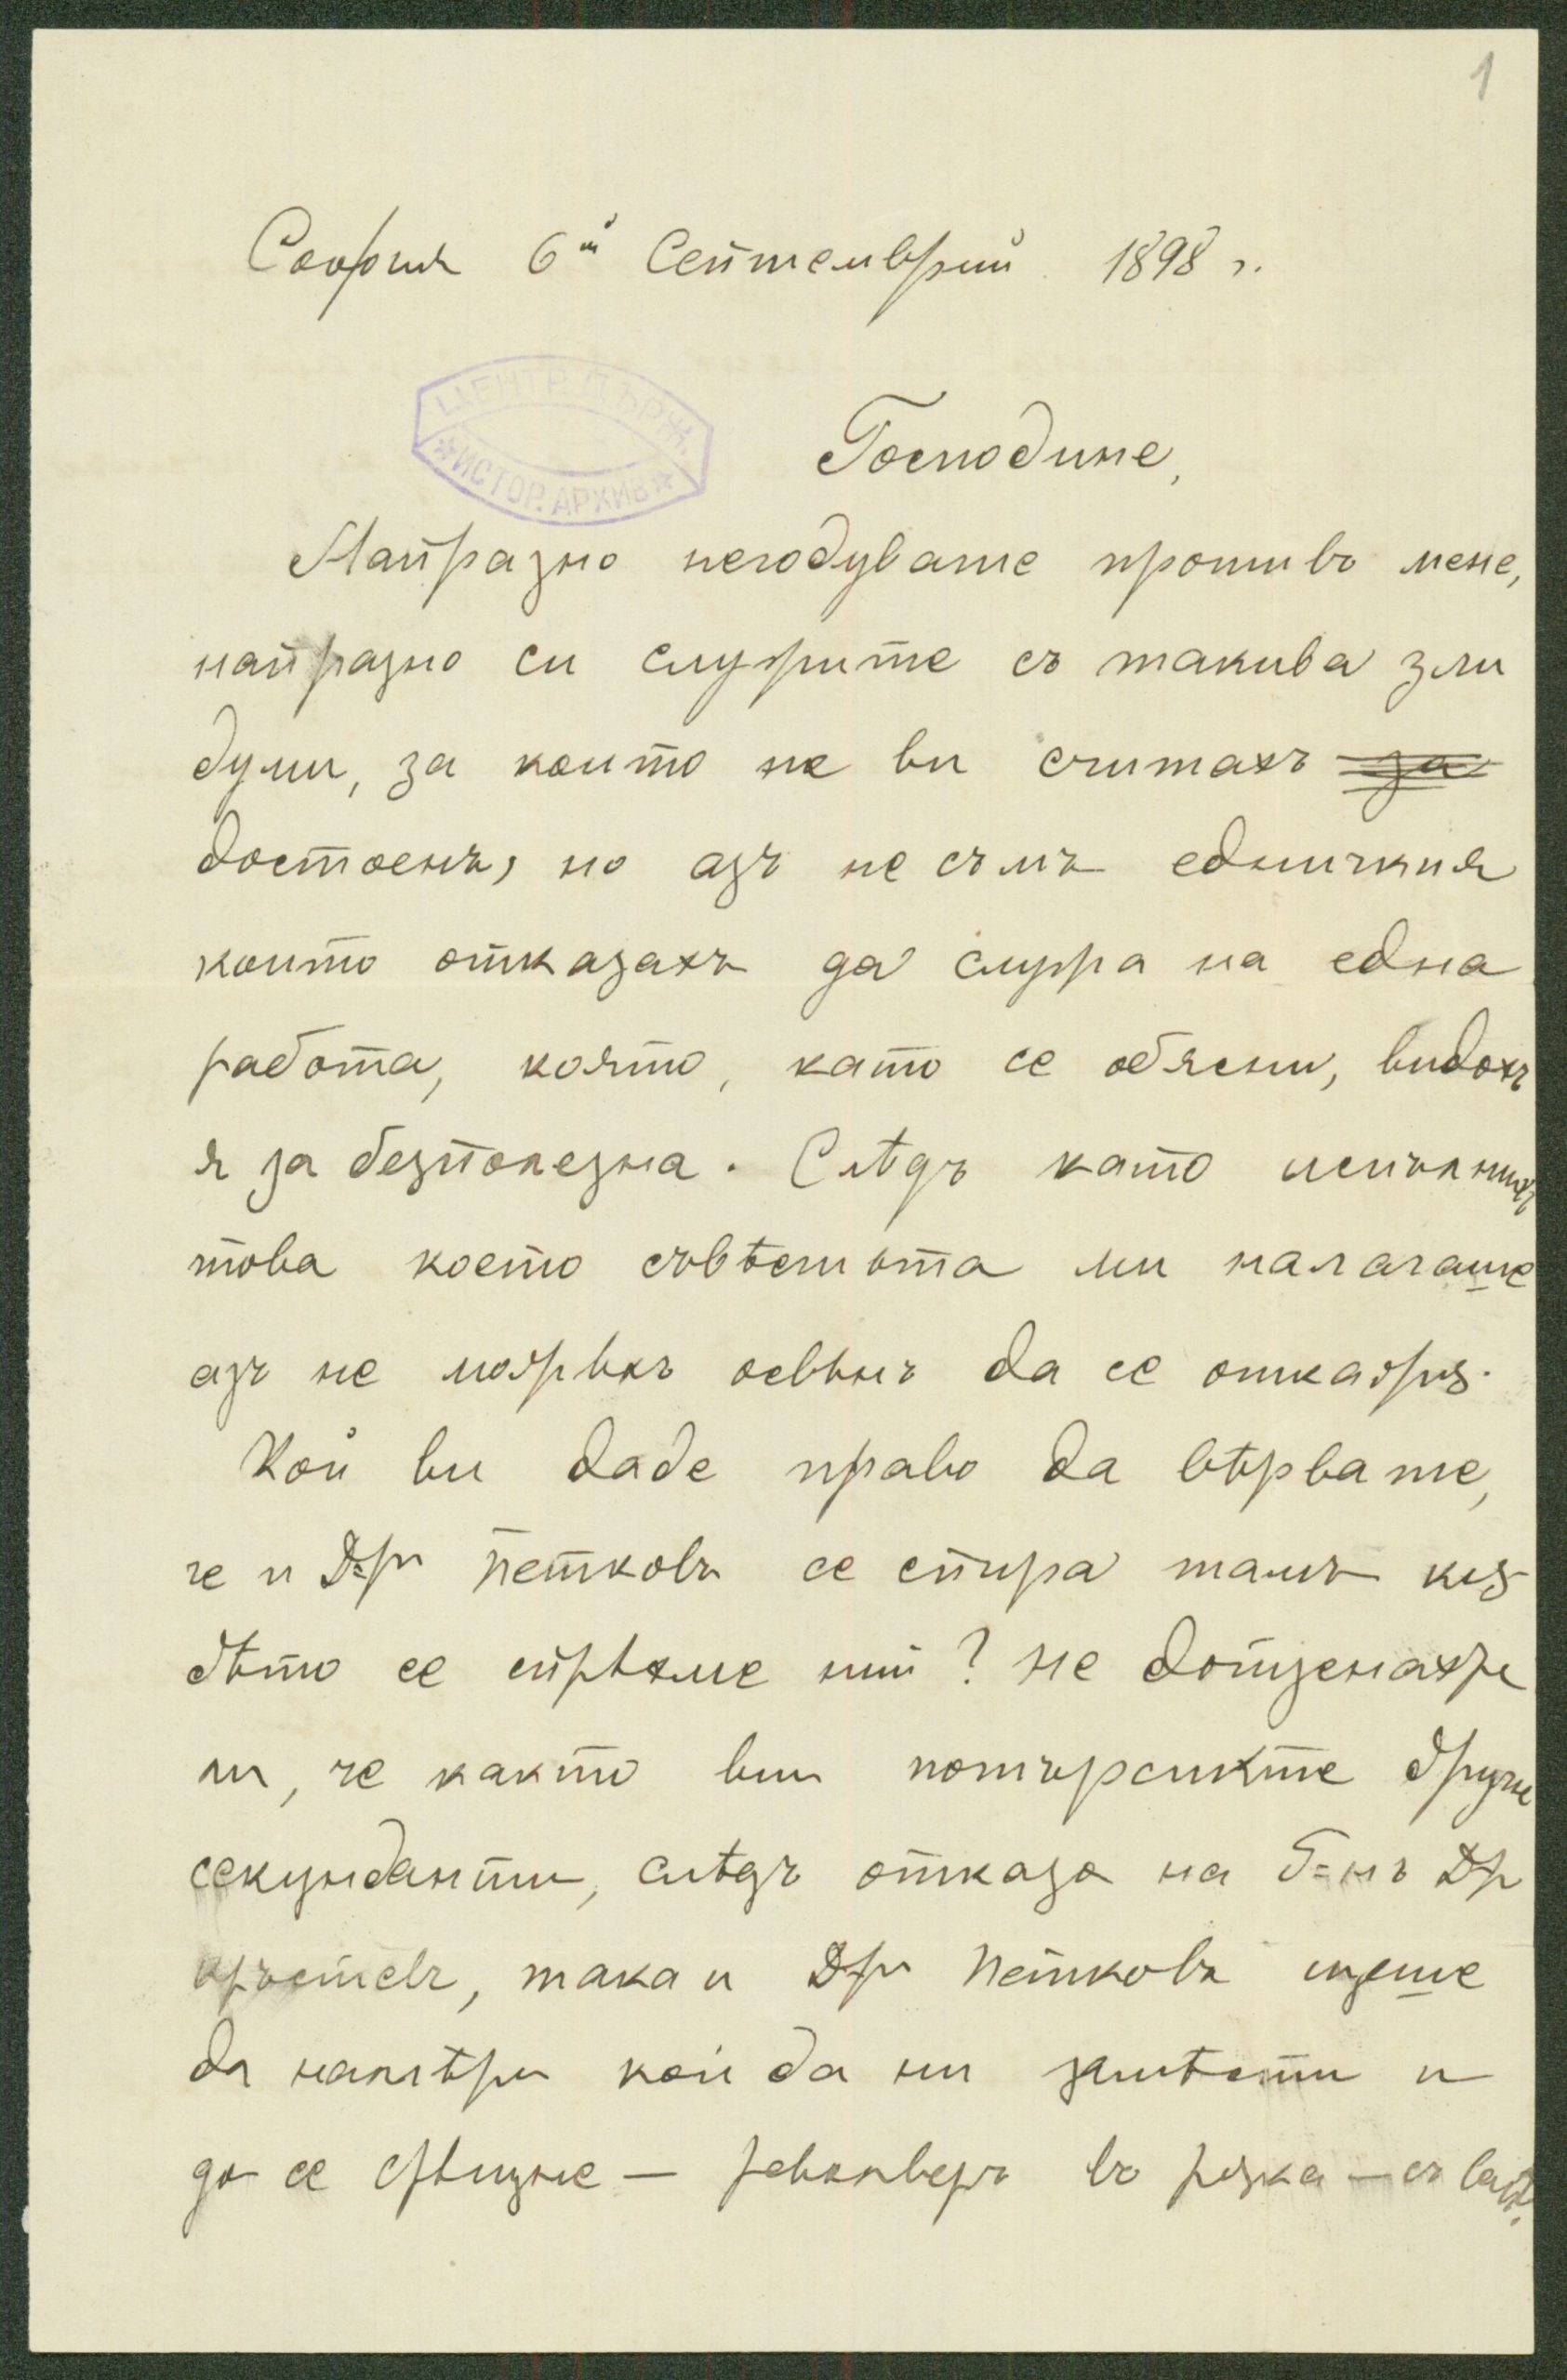 1
София 6й Септемврий 1898 г.
ЦЕНТР. ДЪРЖ.
*ИСТОР. АРХИВ*
Господине,
Напразно негодувате противъ мене,
напразно си служите съ такива зли
думи, за които не ви считахъ за
достоенъ, но азъ не съмъ едничкия
който отказахъ да служа на една
работа, която, като се обясни, видохъ
я за безполезна. Слѣдъ като испълнихъ
това което съвѣстьта ми налагаше
азъ не можѣхъ освѣнъ да се откажѫ.
Кой ви даде право да вѣрвате,
че и Д-ръ Петковъ се спира тамъ кѫ-
дѣто се спрѣхме ний? Не дотѫенахте
ли, че както вий потърсихте други
секунданти, слѣдъ отказа на Г=нъ Др
Кръстевъ, така и Дръ Петковъ щеше
да намѣри кой да ни замѣсти и
да се срѣщне — револверъ въ рѫка — съ васъ.